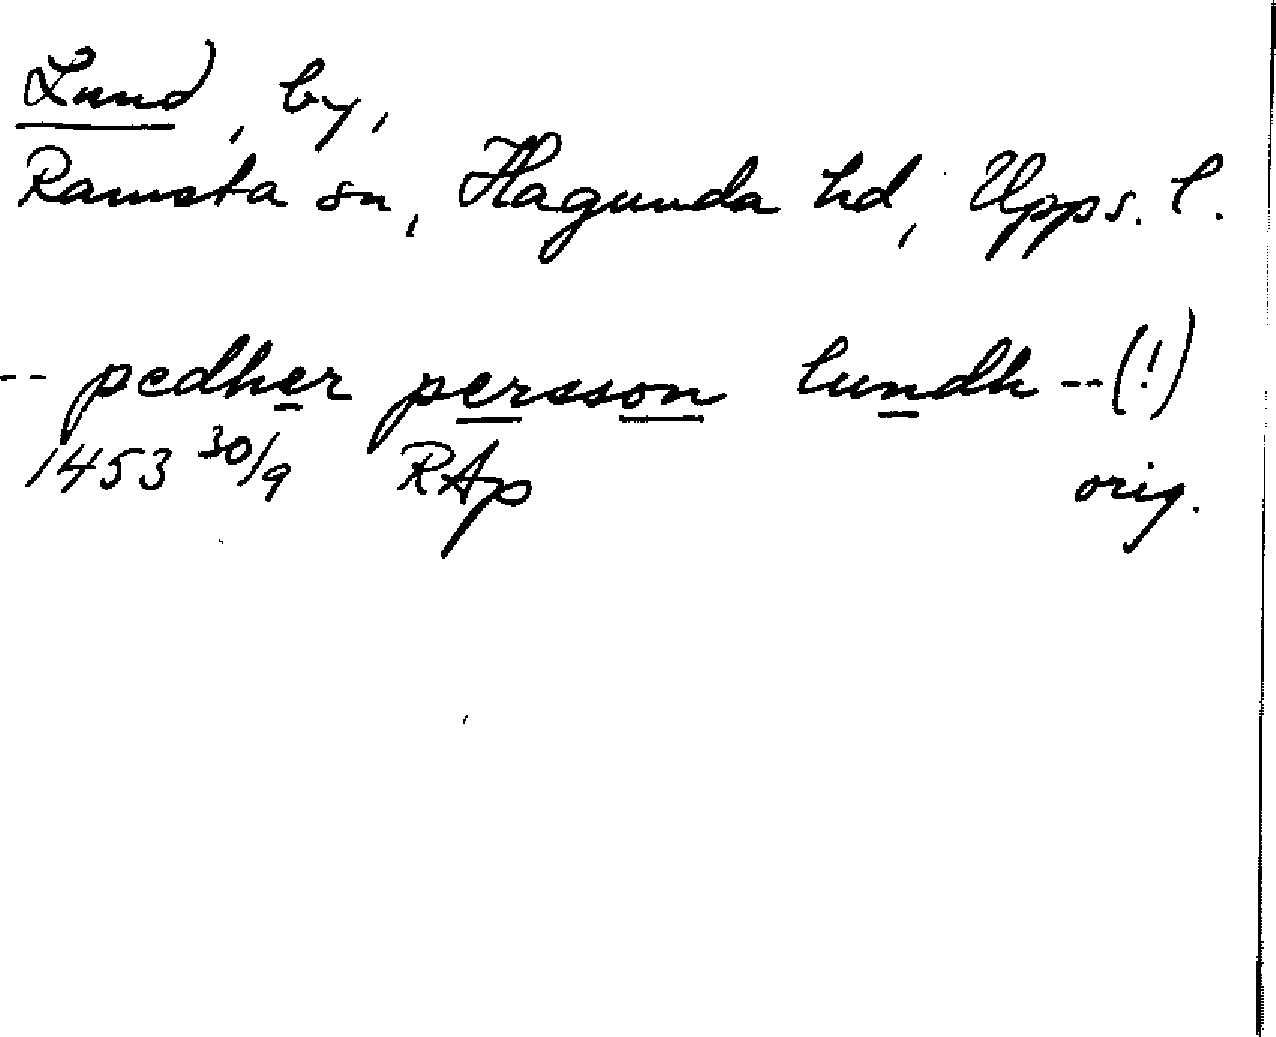 Lund, by,
Ramsta sn, Hagunda hd, Upps. l.
-- pedher persson lundh -- (!)
1453 30/9 RAp orig.